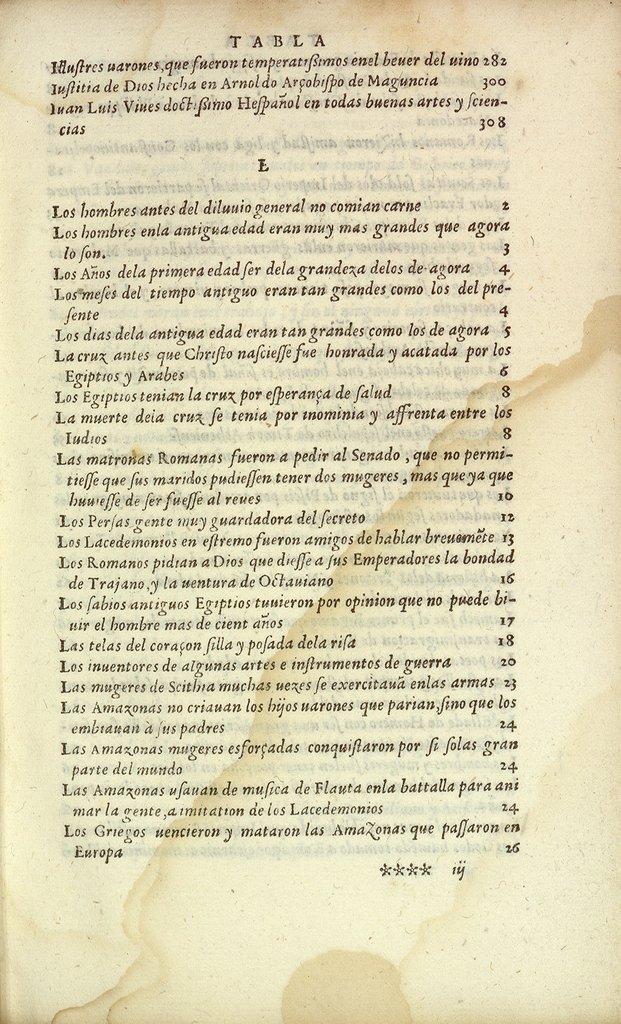 TABLA
Illustres uarones, que fueron temperatißimos enel beuer del uino 282
Iustitia de Dios hecha en Arnoldo Arçobispo de Maguncia 300
Iuan Luis Viues doctißimo Hespañol en todas buenas artes y scien-
cias 308
L
Los hombres antes del diluuio general no comian carne 2
Los hombres enla antigua edad eran muy mas grandes que agora
lo son. 3
Los Años dela primera edad ser dela grandeza delos de agora 4
Los meses del tiempo antiguo eran tan grandes como los del pre-
sente 4
Los dias dela antigua edad eran tan grãndes como los de agora 5
La cruz antes que Christo nasciesse fue honrada y acatada por los
Egiptios y Arabes 6
Los Egiptios tenian la cruz por esperança de salud 8
La muerte dela cruz se tenia por inominia y affrenta entre los
Iudios 8
Las matronas Romanas fueron a pedir al Senado, que no permi-
tiesse que sus maridos pudiessen tener dos mugeres, mas que ya que
huuiesse de ser fuesse al reues 10
Los Persas gente muy guardadora del secreto 12
Los Lacedemonios en estremo fueron amigos de hablar breuemẽte 13
Los Romanos pidian a Dios que diesse a sus Emperadores la bondad
de Trajano, y la uentura de Octauiano 16
Los sabios antiguos Egiptios tuuieron por opinion que no puede bi-
uir el hombre mas de cient años 17
Las telas del coraçon silla y posada dela risa 18
Los inuentores de algunas artes e instrumentos de guerra 20
Las mugeres de Scithia muchas uezes se exercitauã enlas armas 23
Las Amazonas no criauan los hijos uarones que parian, sino que los
embiauan à sus padres 24
Las Amazonas mugeres esforçadas conquistaron por si solas gran
parte del mundo 24
Las Amazonas usauan de musica de Flauta enla battalla para ani
mar la gente, a imitation de los Lacedemonios 24
Los Griegos uencieron y mataron las Amazonas que passaron en
Europa 26
**** iij